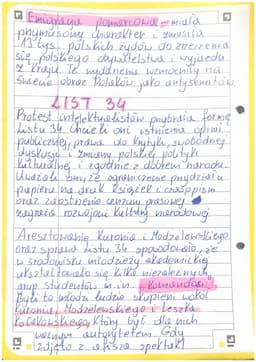 Emigracja pomarcowa - miała
przymusowy charakter i zmusiła
13 tys. polskich żydów do zrzeczenia
się polskiego obywatelstwa i wyjazdu
z kraju. Te wydarzenia wzmocniły na
świecie obraz Polaków jako antysemitów
LIST 34
Protest intelektualistów przybrał formę
Listu 34. Chcieli oni istnienia opinii
publicznej, prawa do krytyki, swobodnej
dyskusji i zmiany polskiej polityki
kulturalnej i zgodnie z dobrem narodu.
Uważali oni, że ograniczenie przydziału
papieru na druk książek i czasopism
oraz zaostrzenie cenzury prasowej
zagraża rozwojowi kultury narodowej
Aresztowanie Kuronia i Modzelewskiego
oraz sprawa Listu 34 spowodowało, że
w środowisku młodzieży akademickiej
ukształtowało się kilka niezależnych
grup studentów m.in. "Komandosi"
Byli to młodzi ludzie skupieni wokół
Kuronia, Modzelewskiego i Leszka
Kołakowskiego, który był dla nich
ważnym autorytetem. Gdy
zdjęto z afisza spektakl